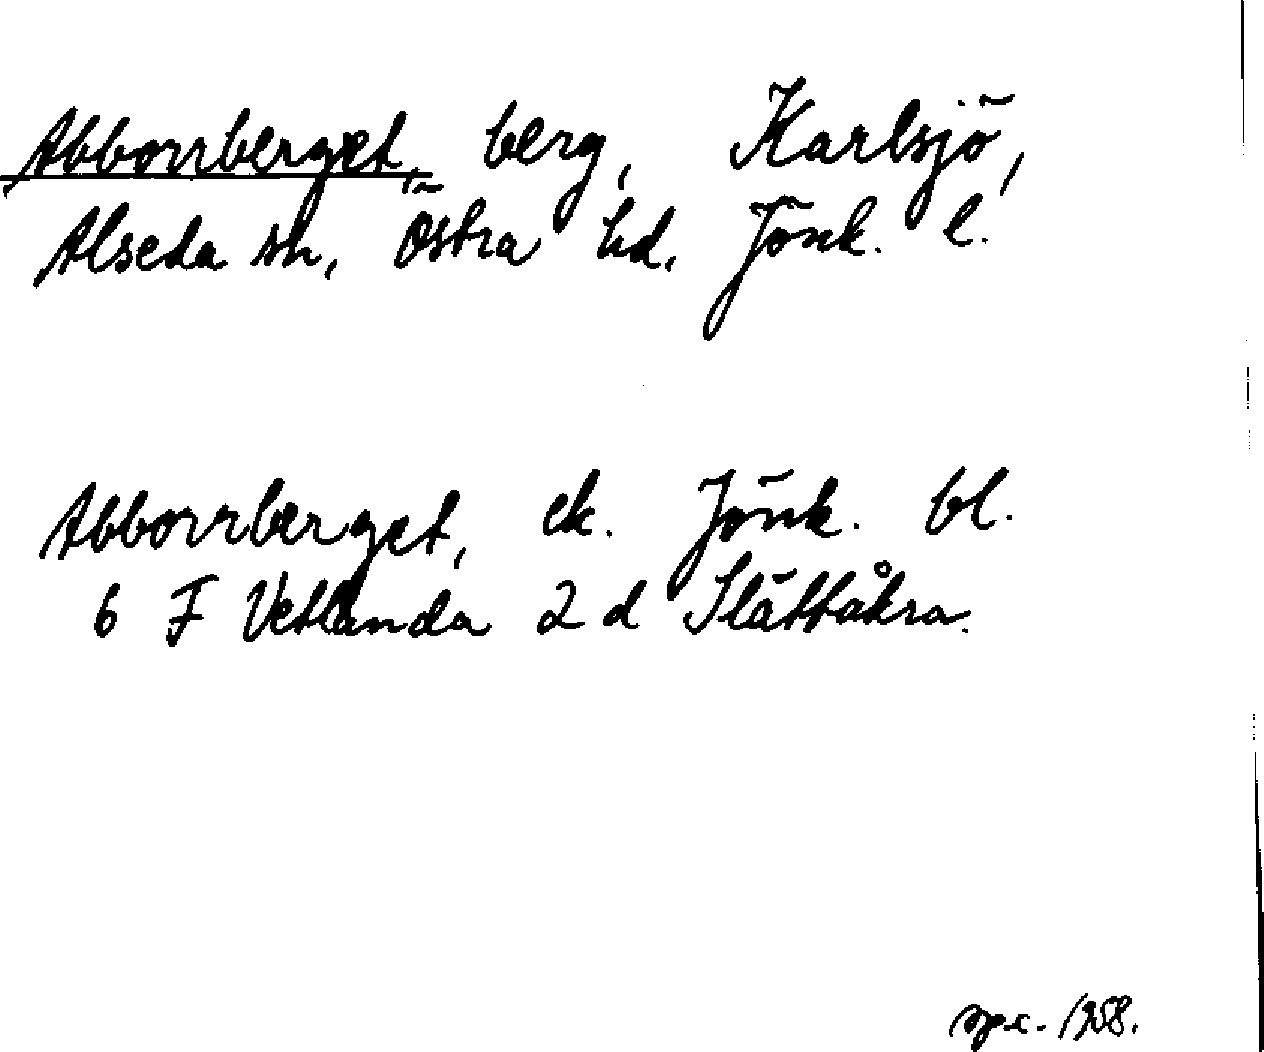 Abborrberget, berg, Karlsjö,
Alseda sn, Östra hd. Jönk. l.
Abborrberget, ek. Jönk. bl.
6 F Vetlanda 2 d Slättåkra.
1958.